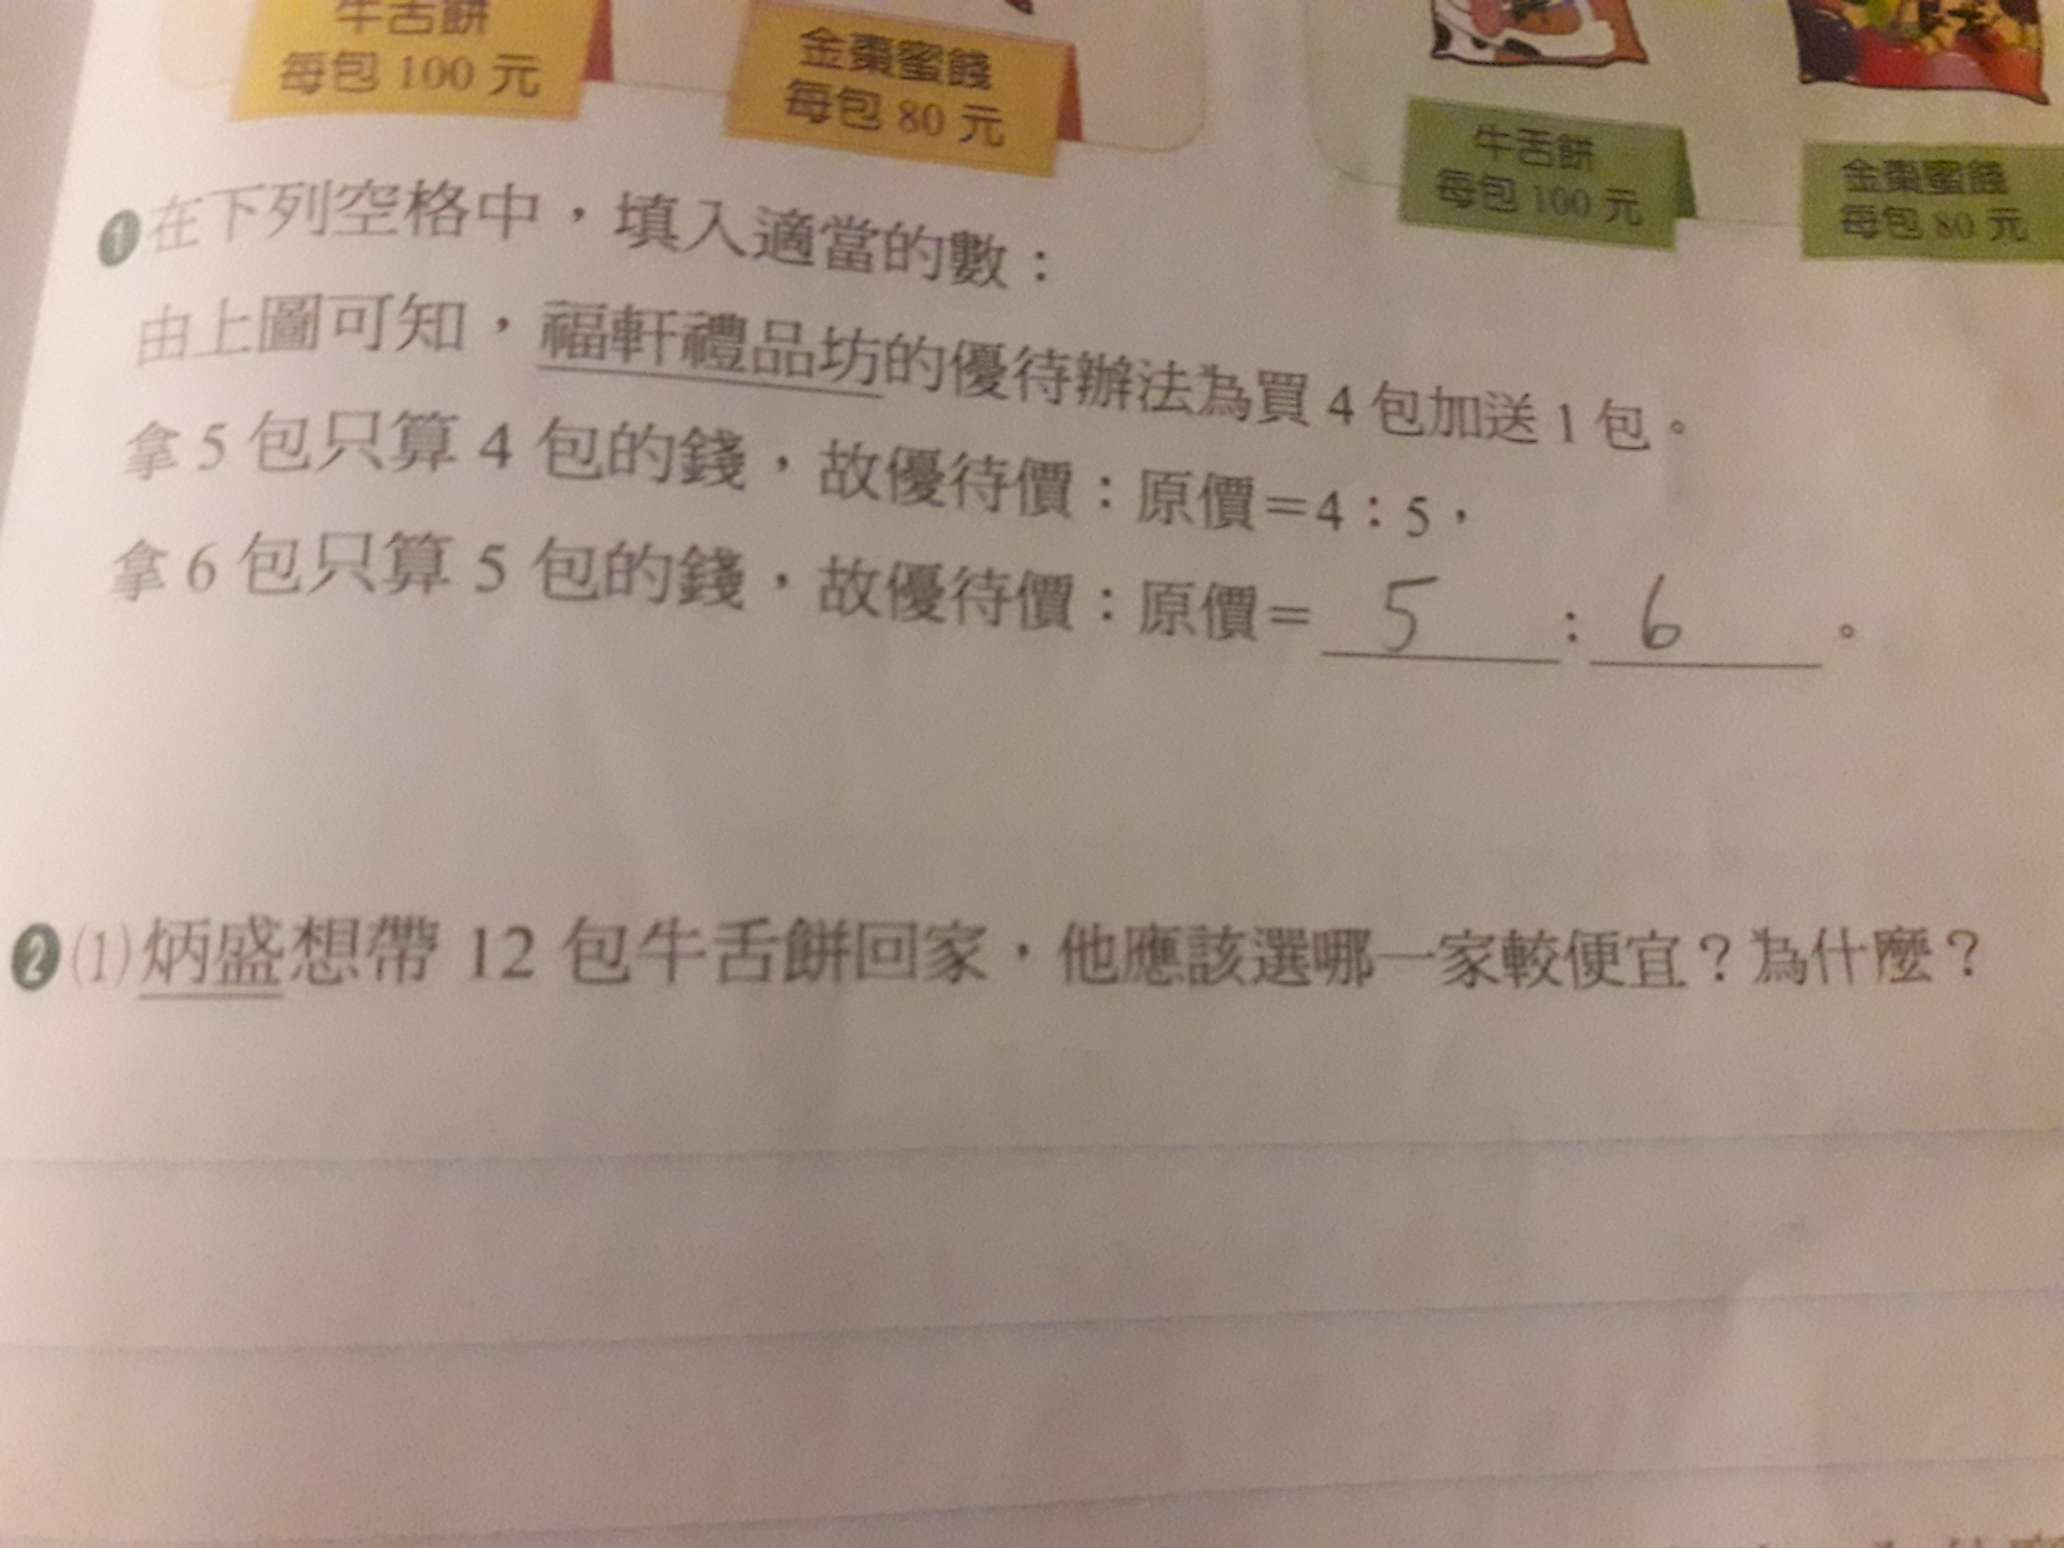 牛舌餅
每包 100 元
金棗蜜餞
每包 80 元
牛舌餅
每包 100 元
金棗蜜餞
每包 80 元
❶在下列空格中，填入適當的數：
由上圖可知，福軒禮品坊的優待辦法為買 4 包加送 1 包。
拿 5 包只算 4 包的錢，故優待價：原價＝4：5，
拿 6 包只算 5 包的錢，故優待價：原價＝ 5 ： 6 。
❷⑴炳盛想帶 12 包牛舌餅回家，他應該選哪一家較便宜？為什麼？